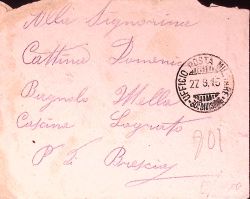 Alla Signorina
Cattina Domenica
Bagnolo Mella
Cascina Lograto
P. di Brescia
UFFICIO POSTA MILITARE
27.8.15
DIVISIONE
106